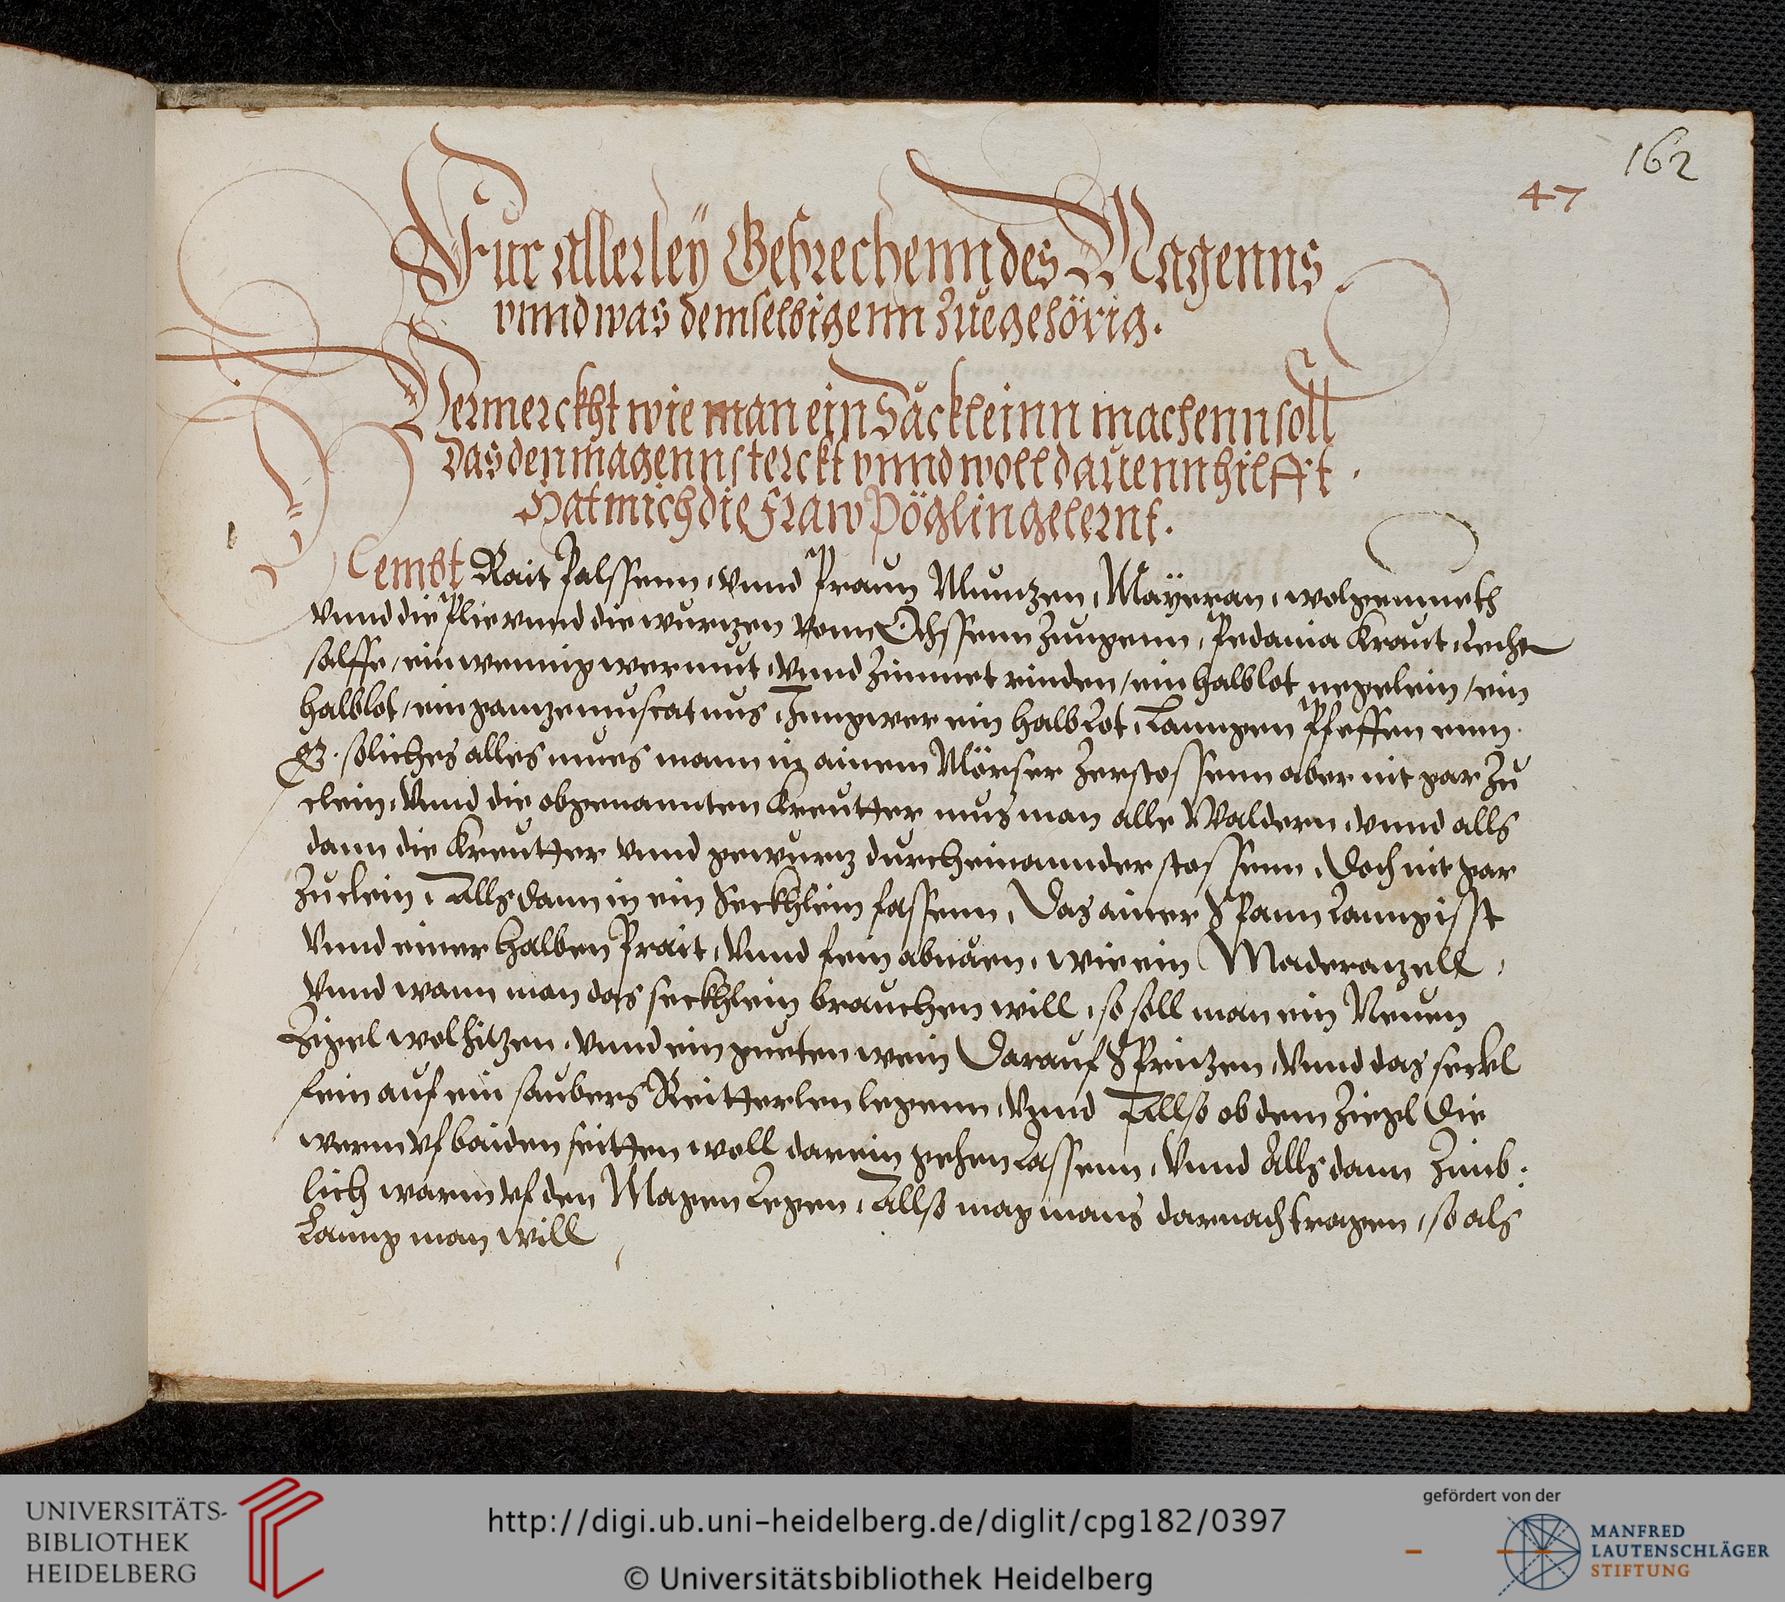 162
47
Fur Allerley Gebrechenn des Magenns
vnnd was demselbigenn Zuegehörig.
Vermerckht wie man ein Säckleinn machenn soll
das den magenn sterckt vnnd woll dauenn hilfft.
Hat mich die Fraw Pöglin gelernt.
Nembt Rait Palssenn, vnnd Praun Muntzen, Mayeran, wolgemueth
vnnd die Plie vnnd die wurtzen vom Ochssenn Zungenn, Pedania Kraut, Recht
salffe, ein wennig wermut, vnnd Zimmet rinden, ein halb lot negelein, ein
halb lot, ein gantze muscatnus, Jmgwer ein halb Lot, Lanngen Pfeffer einn
solliches alles mues mann in ainem Mörser Zerstossenn aber nit gar Zu
clein, vnnd die obgenannten Kreutter mus man alle Waldern, vnnd alls
dann die Kreutter vnnd gewurtz durcheinannder stossenn, Doch nit gar
Zu clein, Allsdann in ein Seckhlein fassenn, Das ainer Spann Lanng isst
vnnd einer halben Prait, vnnd fein abnäen, wie ein Maderatzell,
vnnd wann man das seckhlein brauchen will, so soll man ein Neuen
Zigel wol hitzen, vnnd ein gueten wein Darauf Sprützen, vnnd das seckl
fein auf ein saubers Reitterlen legenn, vnnd Allso ob dem Ziegl Die
werm vf baiden seitten woll darein gehen Lassenn, vnnd Allsdann Zimb:
lich warm vf den Magen Legen, Allso mag mans darnach tragen, so als
Lanng man will
UNIVERSITÄTS-
BIBLIOTHEK
HEIDELBERG
http://digi.ub.uni-heidelberg.de/diglit/cpg182/0397
© Universitätsbibliothek Heidelberg
gefördert von der
MANFRED
LAUTENSCHLÄGER
STIFTUNG